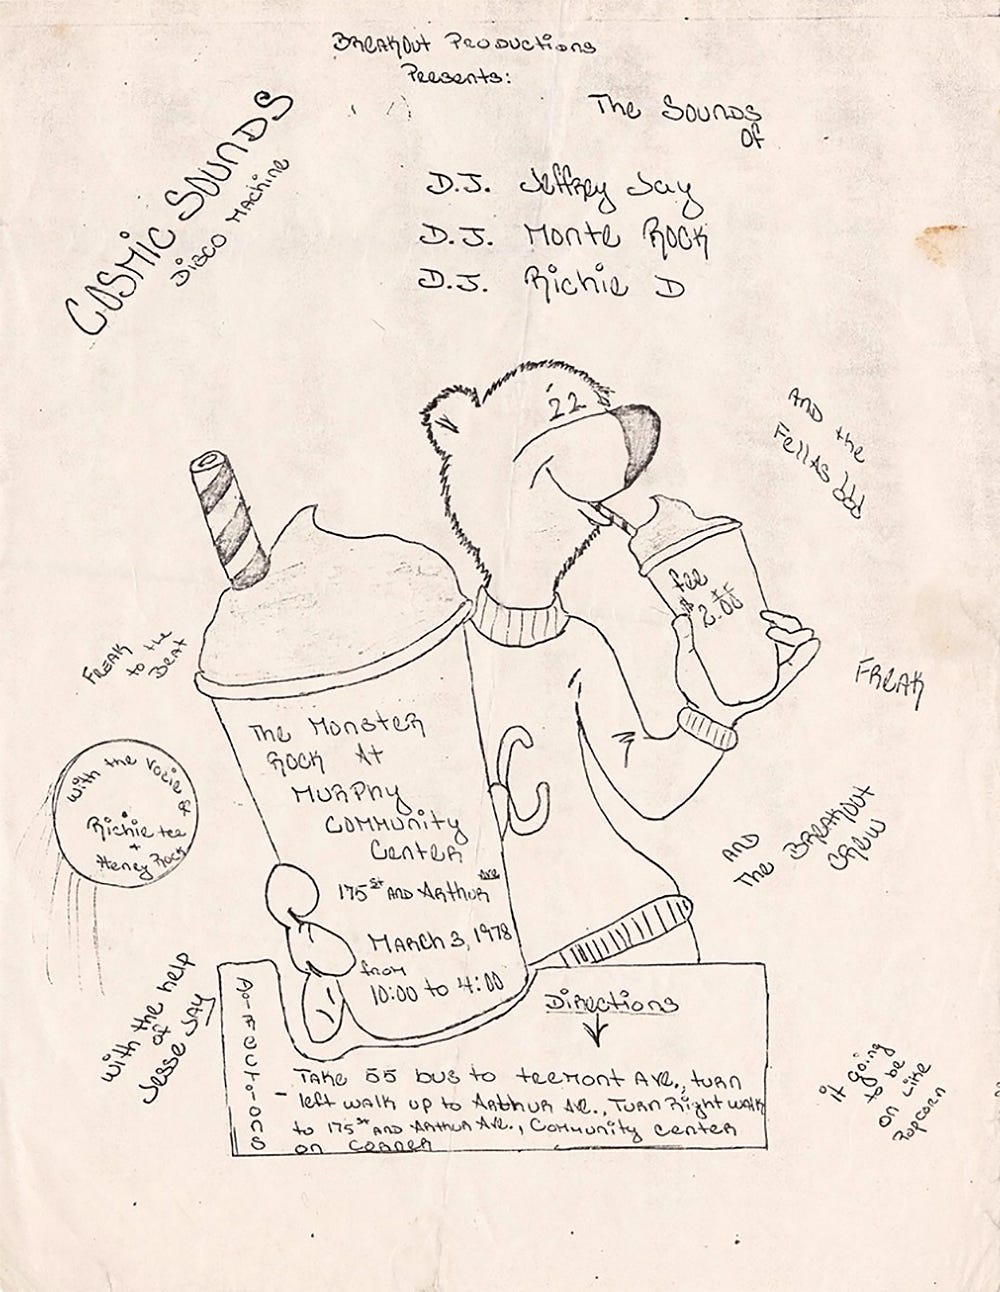 BREAKOUT PRODUCTIONS
Presents:
COSMIC SOUNDS
DISCO MACHINE
The SOUNDS
Of
D.J. Jeffrey Jay
D.J. Monte Rock
D.J. Richie D
AND the
Fellas
fee
2.00
Freak
to the
Beat
FREAK
The Monster
Rock At
Murphy
Community
Center
175st AND Arthur Ave
March 3, 1978
from
10:00 to 4:00
C
with the vocie of
Richie tee
+
Heney Rock
AND
The BREAKOUT
CREW
with the help
of
Jesse Jay
Directions
TAKE 55 bus to teemont Ave., turn
left walk up to Arthur Ave., Turn Right walk
to 175st AND Arthur Ave., Community center
on corner
it going
to be
on Like
Popcorn